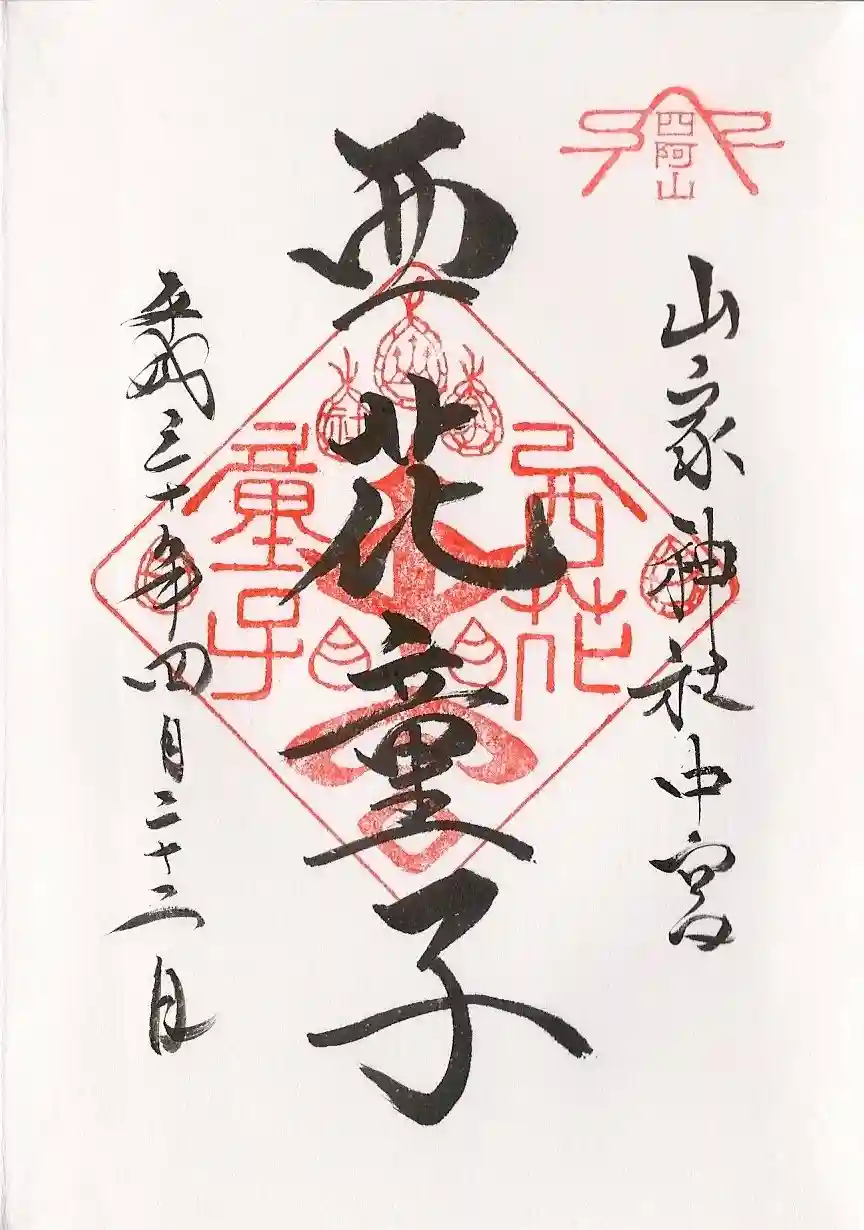 四阿山
山家神社中宮
西花童子
西花
童子
社
平成三十年四月二十二日